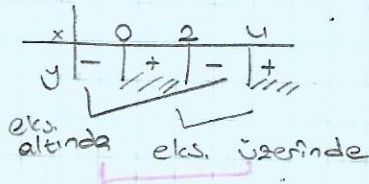 x 0 2 4
y - + - +
eks. altında
eks. üzerinde